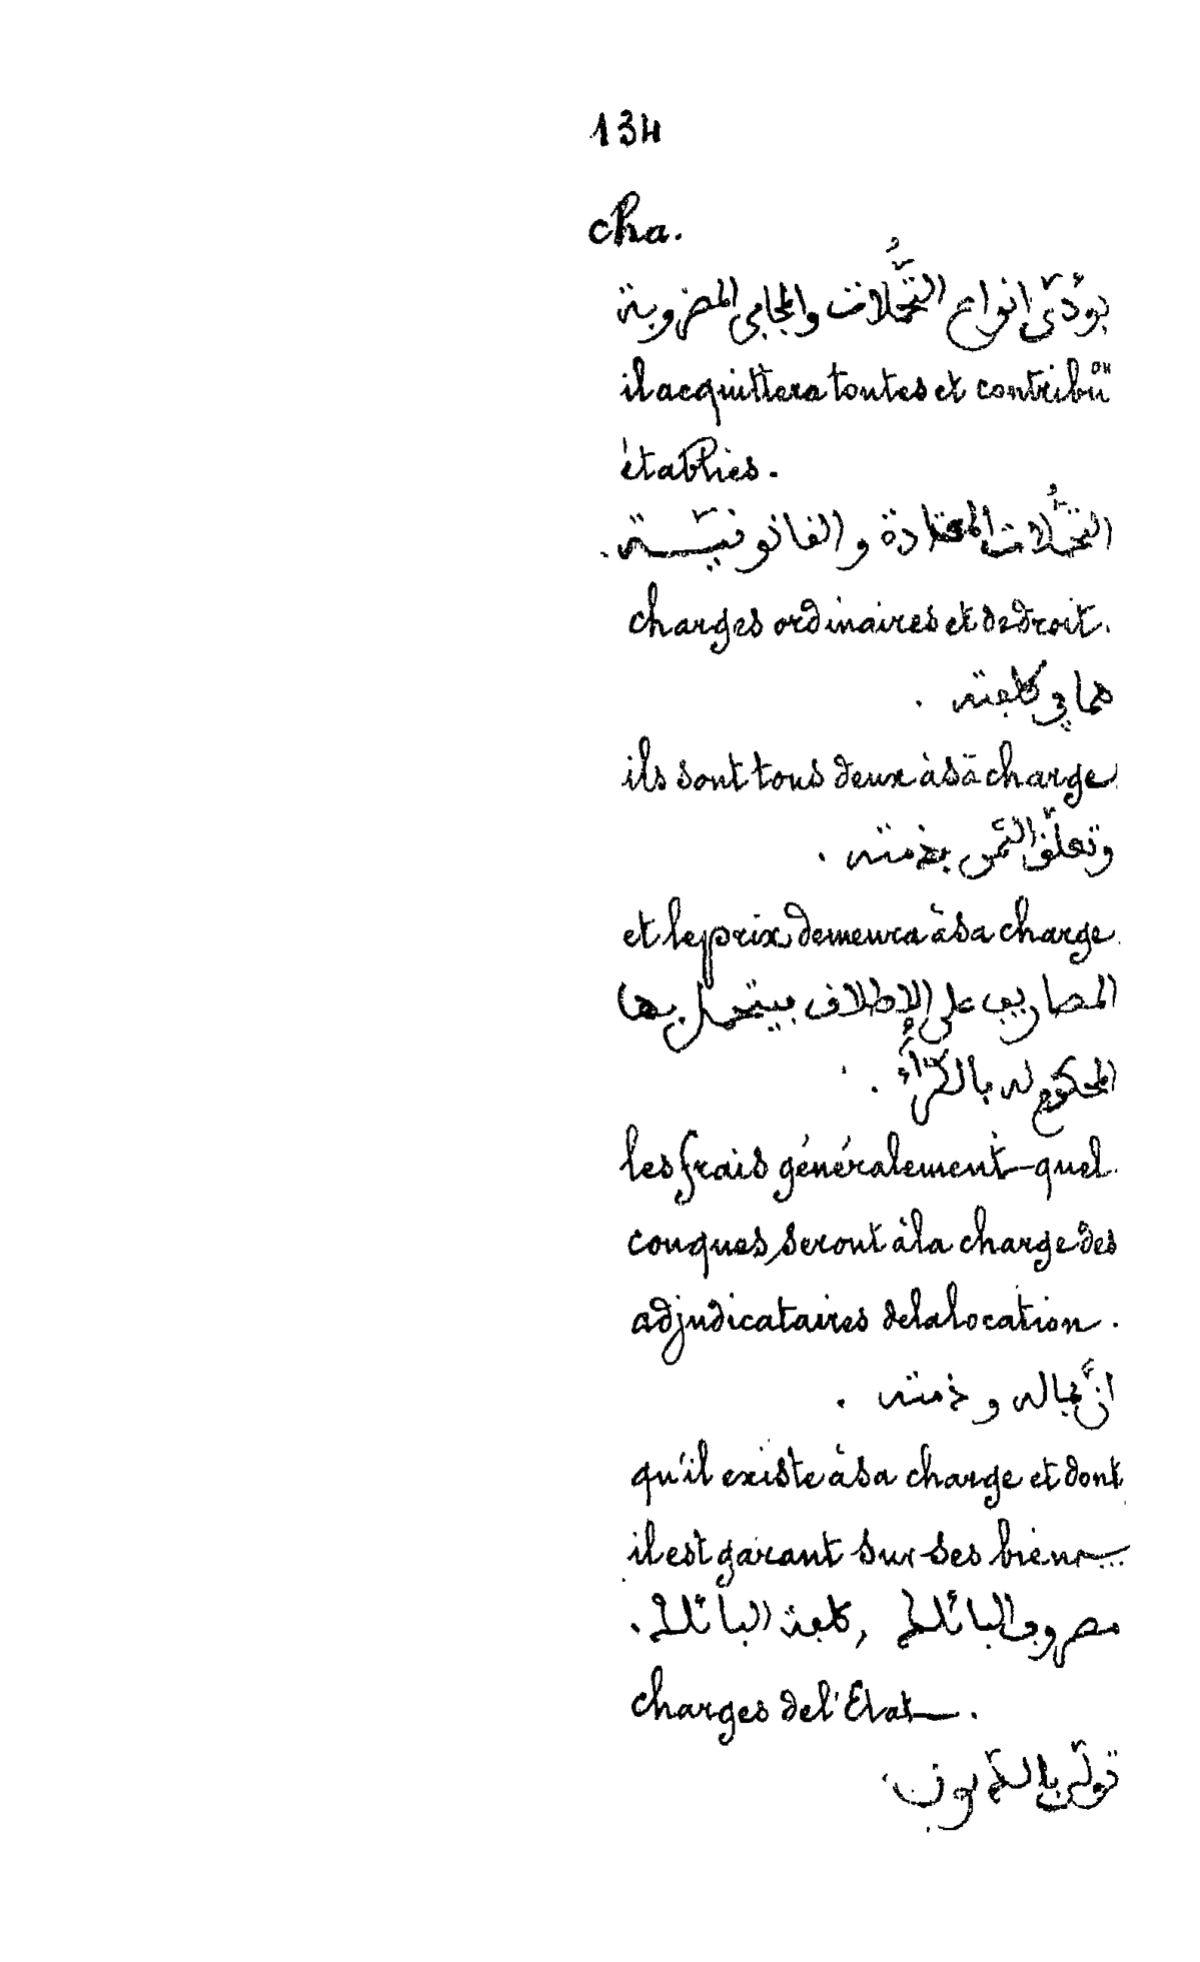 134
cha.
يودّى انواع التحمُّلات والمجابي المضروبة
il acquittera toutes et contribu͞on
établies.
التحمُّلات المعتادة والقانونيّـــة.
charges ordinaires et de droit.
هما في كلفته .
ils sont tous deux à sa charge.
وتعلّق الثّمن بذمته .
et le prix demeura à sa charge.
المصاريف على الإطلاق يتحمل بها
المحكوم له بالكرَآء .
les frais généralement quel-
conques, seront à la charge des
adjudicataires de la location.
انَّ بباله وذمته .
qu'il existe à sa charge et dont
il est garant sur ses biens.
مصروف البائلك , كلفة البائلك .
charges de l'Etat.